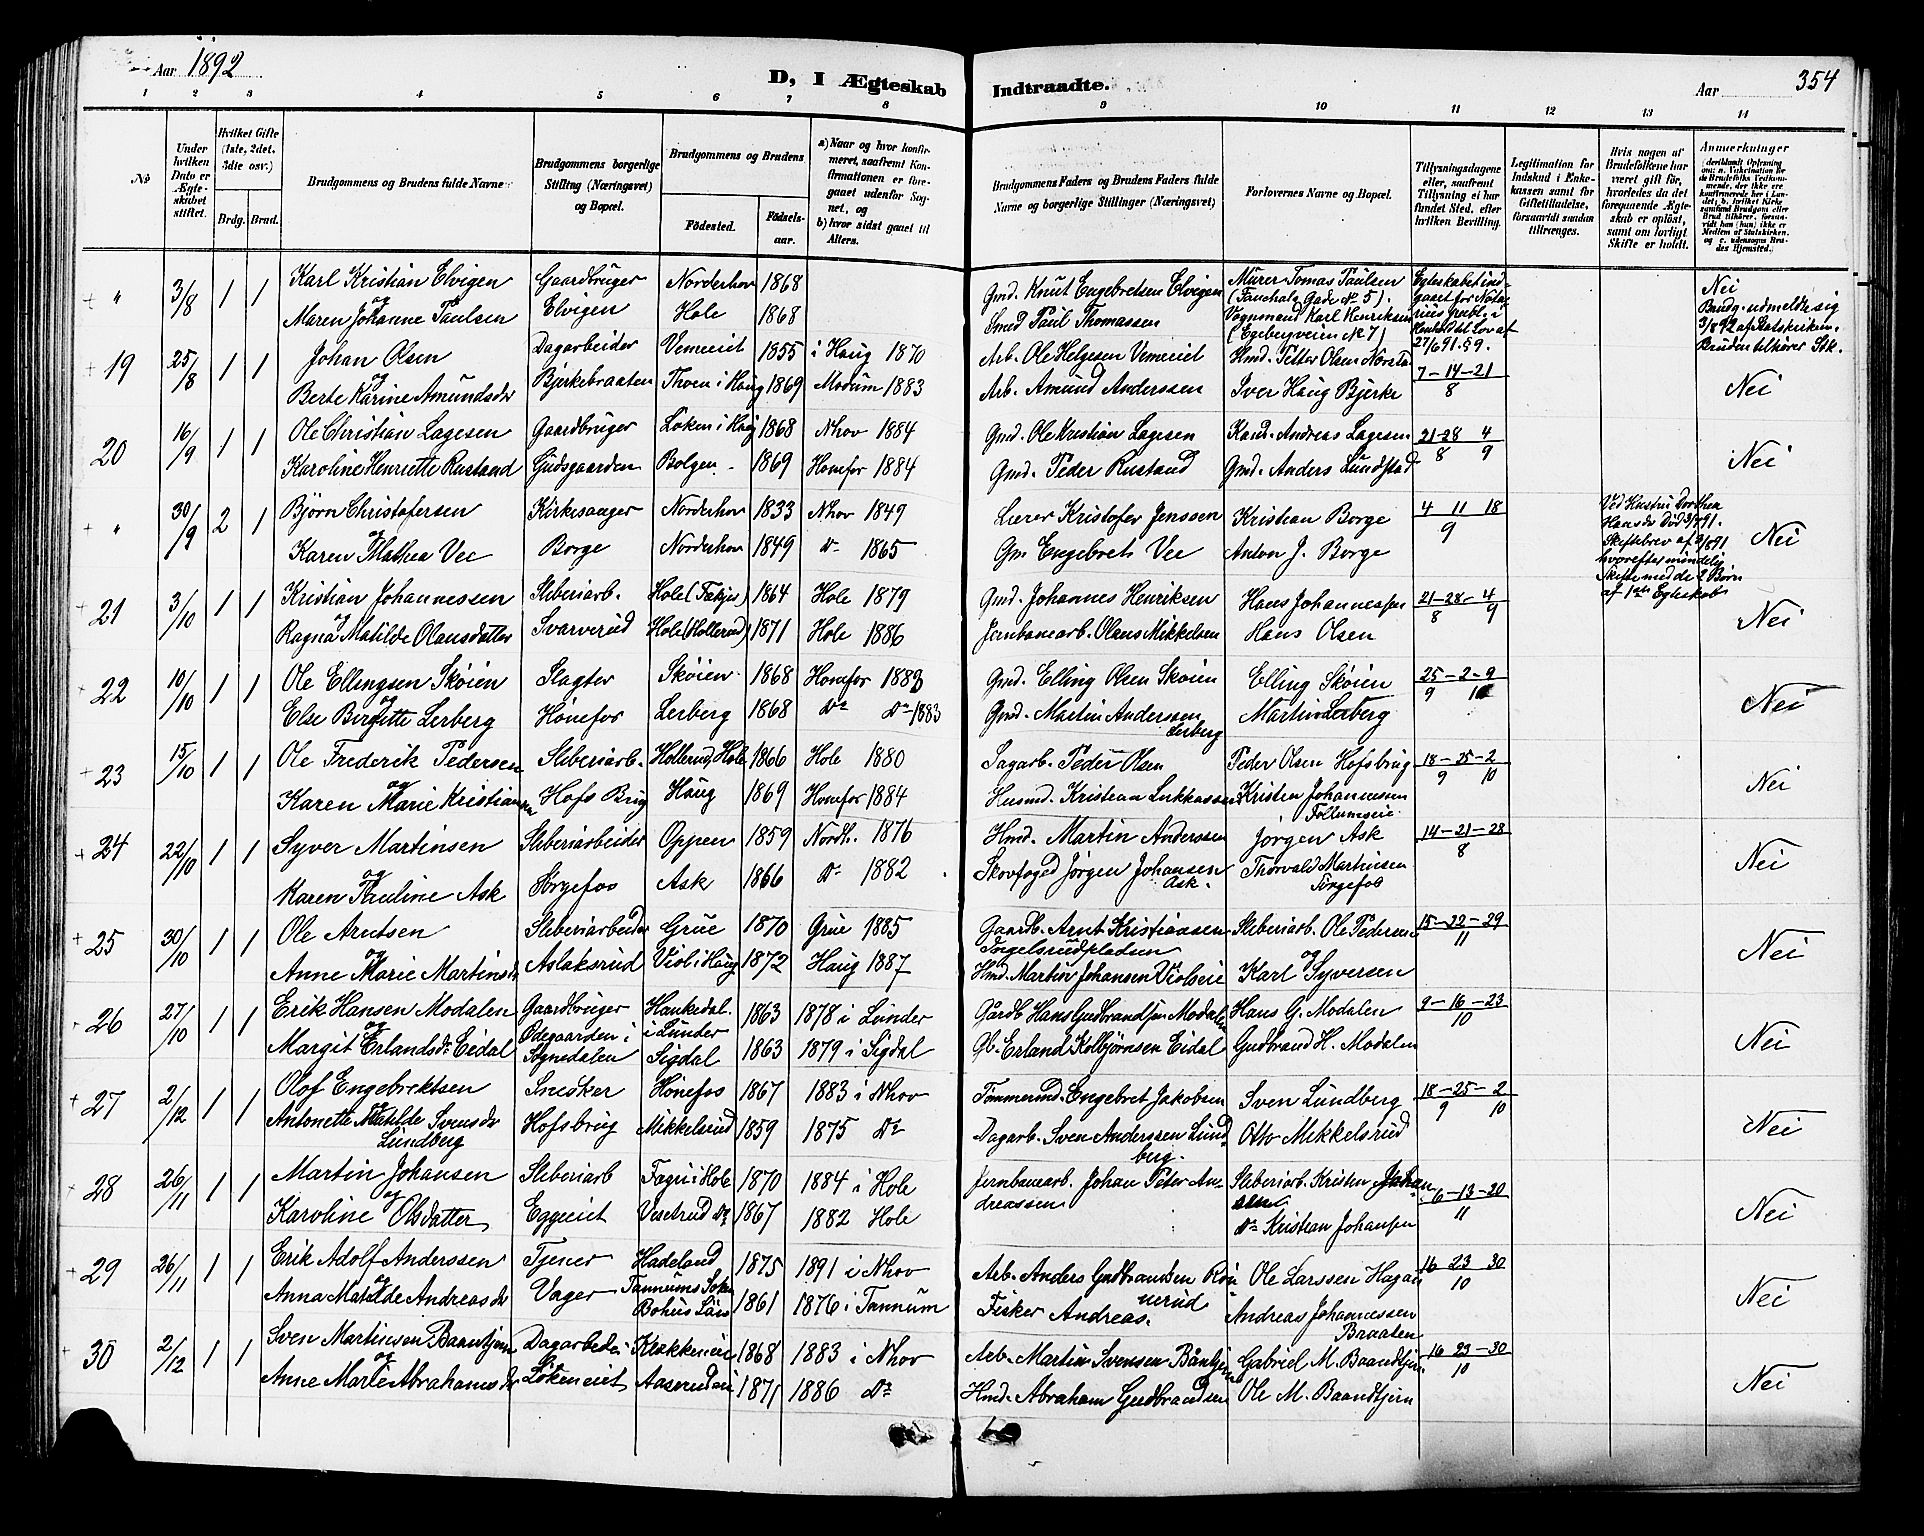 Aar 1892
D, I Ægteskab Indtraadte.
Aar 354
1 2 3 4 5 6 7 8 9 10 11 12 13 14
No
Under hvilken Dato er Ægteskabet stiftet.
Hvilket Gifte (1ste, 2det, 3die osv.)
Brdg. Brud.
Brudgommens og Brudens fulde Navne
Brudgommens borgerlige Stilling (Næringsvei) og Bopæl.
Brudgommens og Brudens
Fødested. Fødselsaar.
a) Naar og hvor konfirmeret, saafremt Konfirmationen er foregaaet udenfor Sognet, og
b) hvor sidst gaaet til Alters.
Brudgommens Faders og Brudens Faders fulde Navne og borgerlige Stillinger (Næringsvei)
Forlovernes Navne og Bopæl.
Tillysningsdagene eller, saafremt Tillysning ei har fundet Sted, efter hvilken Bevilling.
Legitimation for Indskud i Enkekassen samt for Giftetilladelse, forsaavidt saadan tiltrænges.
Hvis nogen af Brudefolkene har været gift før, hvorledes da det foregaaende Ægteskab er opløst, samt om lovligt Skifte er holdt.
Anmærkninger
" 3/8 1 1 Karl Kristian Elvigen Gaardbruger Norderhov 1868 Gmd. Knut Engebretsen Elvigen Murer Tomas Paulsen Egteskabet ind- Nei
og (Fauchals Gade No 5). gaaet for Nota- Brudg. udmeldte sig
Maren Johanne Paulsen Elvigen Hole 1868 Smed Paul Thomassen Vognmand Karl Henriksen rius publ. i 3/8 92 af Statskirken.
(Egebergveien No 7) Henhold til Lov af 27/6 91. § 9. Bruden tilhører Stk.
19 25/8 1 1 Johan Olsen Dagarbeider Vemeeiet 1855 i Haug 1870 Arb. Ole Helgesen Vemeeiet Hmd. Petter Olsen Norsta 7-14-21
og
Berte Karine Amundsdr Bjerkebraaten Thoen i Haug 1869 Modum 1883 Arb. Amund Anderssen Iver Haug Bjerke 8 Nei
20 16/9 1 1 Ole Christian Lagesen Gaardbruger Loken i Haug 1868 Nhov 1884 Gmd. Ole Kristian Lagesen Kand. Andreas Lagesen 21-28 4
Karoline Henriette Rustand Gudsgaarden Bolgen 1869 Honefos 1884 Gmd. Peder Rustand Gmd. Anders Lundstad 8 9 Nei
" 30/9 2 1 Bjørn Christofersen Kirkesanger Norderhov 1833 Nhov 1849 Lærer Kristofer Jenssen Kristian Borge 4 11 18 Ved Hustru Dorthea
og Hansdr Død 3/8 91.
Karen Mathea Vee Borge Norderhov 1849 Do 1865 Gm Engebret Vee Anton J. Borge 9 Skiftebrev af 9/8 91 Nei
hvorefter mindelig
Skifte med de 2 Børn
af 1ste Egteskab
21 3/10 1 1 Kristian Johannessen Sliberiarb. Hole (Fækjer) 1864 Hole 1879 Gmd. Johannes Henriksen Hans Johannessen 21-28-4
og
Ragna Matilde Olausdatter Svarverud Hole (Hollerud) 1871 Hole 1886 Jernbanearb. Olaus Mikkelsen Hans Olsen 8 9 Nei
22 10/10 1 1 Ole Ellingsen Skoien Slagter Skøien 1868 Honefos 1883 Gmd. Elling Olsen Skoien Elling Skøien 25-2-9
og
Else Birgitte Lerberg Hönefos Lerberg 1868 Do Do 1883 Gmd. Martin Anderssen Lerberg Martin Lerberg 9 10 Nei
23 15/10 1 1 Ole Frederik Pedersen Sliberiarb. Hollerud, Hole 1866 Hole 1880 Sagarb. Peder Olsen Peder Olsen Hofsbrug 18-25-2
og
Karen Marie Kristians Hofs Brug Haug 1869 Honefos 1884 Husmd. Kristian Lukkassen Kristen Johannesen Follumseie 9 10 Nei
24 22/10 1 1 Syver Martinsen Sliberiarbeider Oppen 1859 Nordh. 1876 Hmd. Martin Anderssen Jorgen Ask 14-21-28
og
Karen Pauline Ask Sørgefos Ask 1866 Do 1882 Skovfoged Jörgen Johansen Ask. Thorvald Martinsen Sörgefos 8 Nei
25 30/10 1 1 Ole Arntsen Sliberiarbeider Grue 1870 Grue 1885 Gaardb. Arnt Kristiansen Ingelsrudpladsen Sliberiarb. Ole Pedersen 15-22-29
og og
Anne Marie Martinsdr Aslaksrud Viol i Haug 1872 Haug 1887 Hmd. Martin Johansen Violseie Karl Syversen 11 Nei
26 27/10 1 1 Erik Hansen Modalen Gaardbruger Haukedal. i Lunder 1863 1878 i Lunder Gårdb Hans Gudbrandsen Modalen Hans G. Modalen 9-16-23
og
Margit Erlandsdr Eidal Ödegaarden i Sognedalen Sigdal 1863 1879 i Sigdal Gb. Erland Kolbjørnsen Eidal Gudbrand H. Modalen 10 Nei
27 2/12 1 1 Olof Engebrektsen Snedker Hönefos 1867 1883 i Nhov Tömmermd. Engebret Jakobsen Sven Lundberg 18-25-2
og
Antonette Matilde Svensdr Lundberg Hofsbrug Mikkelsrud 1859 1875 Do Dagarb. Sven Anderssen Lundberg. Otto Mikkelsrud 9 10 Nei
28 26/11 1 1 Martin Johansen Sliberiarb Fægri i Hole 1870 1884 i Hole Jernbanearb. Johan Peter Andreassen Sliberiarb. Kristen Johansen 6-13-20
og
Karoline Olsdatter Eggeeiet Vesetrud Do 1867 1882 Hole Do Kristian Johansen 11 Nei
29 26/11 1 1 Erik Adolf Anderssen Tjener Hadeland 1875 1891 i Nhov Arb. Anders Gudbrandsen Rönnerud Ole Larssen Hagan 16 23 30
og
Anna Matilde Andreasdr Vager Tannums Sokn Bohus Län 1861 1876 i Tannum Fisker Andreas. Andreas Johannessen Braaten 10 Nei
30 2/12 1 1 Sven Martinsen Baantjern Dagarbeder Klækkeneie 1868 1883 i Nhov Arb. Martin Svensen Båntjern Gabriel M. Baandtjern 16 23-30
og
Anne Marie Abrahamsdr Lökeneiet Aaserudeie 1871 1886 Do Hmd. Abraham Gudbrandsen Ole M. Baandtjern 10 Nei